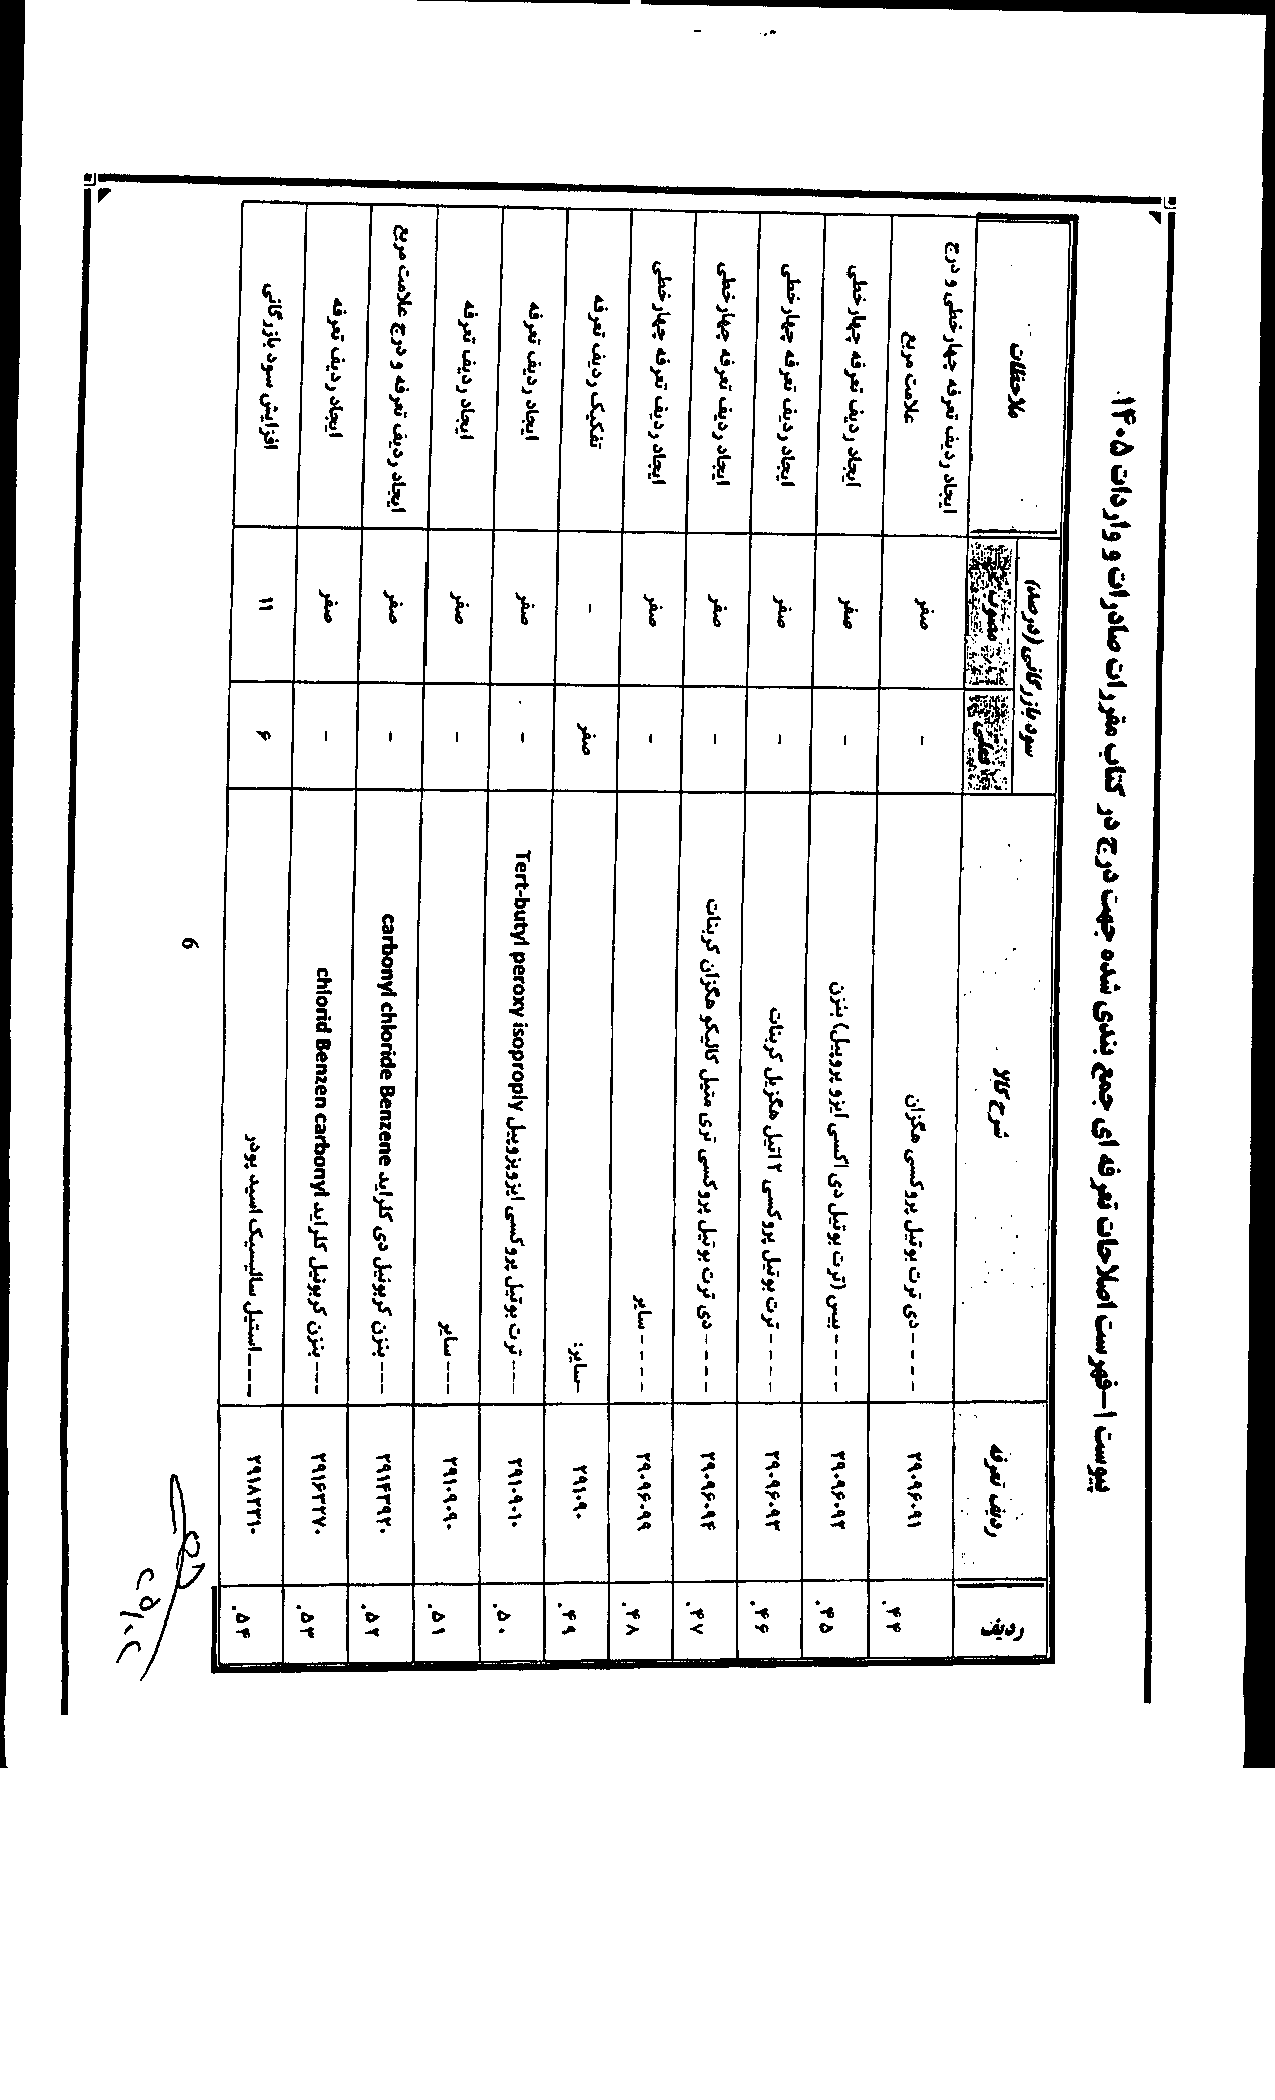 پیوست ۱-فهرست اصلاحات تعرفه ای جمع بندی شده جهت درج در کتاب مقررات صادرات و واردات ۱۴۰۵
ردیف ردیف تعرفه شرح کالا سود بازرگانی (درصد) ملاحظات
فعلی مصوب
۴۴. ۲۹۰۹۶۰۹۱ - - - - دی ترت بوتیل پروکسی هگزان - صفر ایجاد ردیف تعرفه چهارخطی و درج
علامت مربع
۴۵. ۲۹۰۹۶۰۹۲ - - - - بیس (ترت بوتیل دی اکسی ایزو پروپیل) بنزن - صفر ایجاد ردیف تعرفه چهارخطی
۴۶. ۲۹۰۹۶۰۹۳ - - - - ترت بوتیل پروکسی ۲ اتیل هگزیل کربنات - صفر ایجاد ردیف تعرفه چهارخطی
۴۷. ۲۹۰۹۶۰۹۴ - - - - دی ترت بوتیل پروکسی تری متیل کالیکو هگزان کربنات - صفر ایجاد ردیف تعرفه چهارخطی
۴۸. ۲۹۰۹۶۰۹۹ - - - - سایر - صفر ایجاد ردیف تعرفه چهارخطی
۴۹. ۲۹۱۰۹۰ -سایر: صفر - تفکیک ردیف تعرفه
۵۰. ۲۹۱۰۹۰۱۰ ---ترت بوتیل پروکسی ایزوپروپیل Tert-butyl peroxy isoproply - صفر ایجاد ردیف تعرفه
۵۱. ۲۹۱۰۹۰۹۰ ---سایر - صفر ایجاد ردیف تعرفه
۵۲. ۲۹۱۴۳۹۲۰ ---بنزن کربونیل دی کلراید carbonyl chloride Benzene - صفر ایجاد ردیف تعرفه و درج علامت مربع
۵۳. ۲۹۱۶۳۲۷۰ ---بنزن کربونیل کلراید chlorid Benzen carbonyl - صفر ایجاد ردیف تعرفه
۵۴. ۲۹۱۸۲۲۱۰ ---استیل سالیسیک اسید پودر ۶ ۱۱ افزایش سود بازرگانی
6